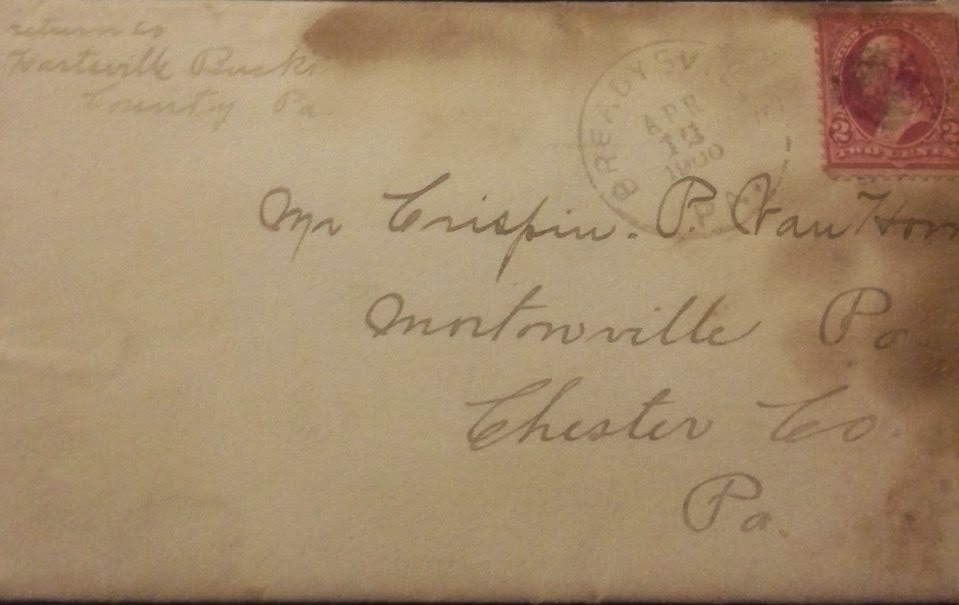 return to
Hartsville Bucks
County Pa
BREADYSVILLE
APR
13
1900
PA.
2 2
TWO CENTS
Mr Crispin. P. Van Horn
Mortonville Po
Chester Co.
Pa.